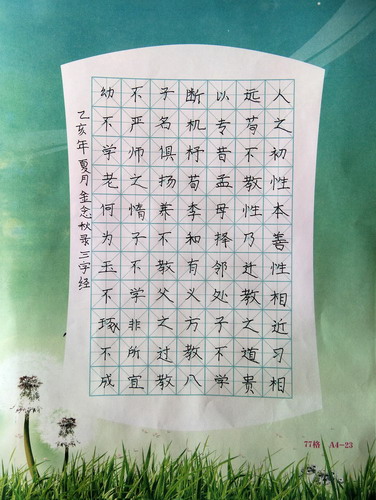 人之初性本善性相近习相
远苟不教性乃迁教之道贵
以专昔孟母择邻处子不学
断机杼苟李和有义方教八
子名俱扬养不教父之过教
不严师之惰子不学非所宜
幼不学老何为玉不琢不成
乙亥年夏月金念秋录三字经
77格 A4-23